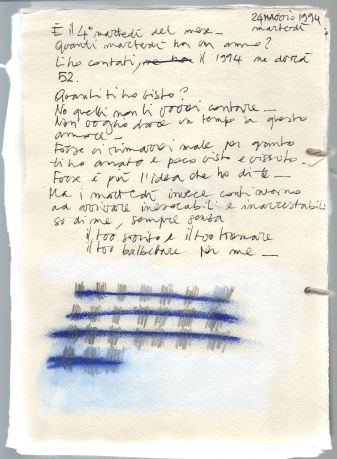 24 MAGGIO 1994
martedì
È il 4° martedì del mese_
Quanti martedì ha un anno?
Li ho contati, il 1994 ne dovrà
52.
Quanti ti ho visto?
No quelli non li vorrei contare_
Non voglio dare un tempo a questo
amore_
Forse ci rimarrei male per quanto
ti ho amato e poco visto e vissuto.
Forse è più l'idea che ho di te_
Ma i martedì invece continuano
ad arrivare inesorabili e inarrestabili
su di me, sempre senza
il tuo sorriso e il tuo tremare
il tuo balbettare per me_